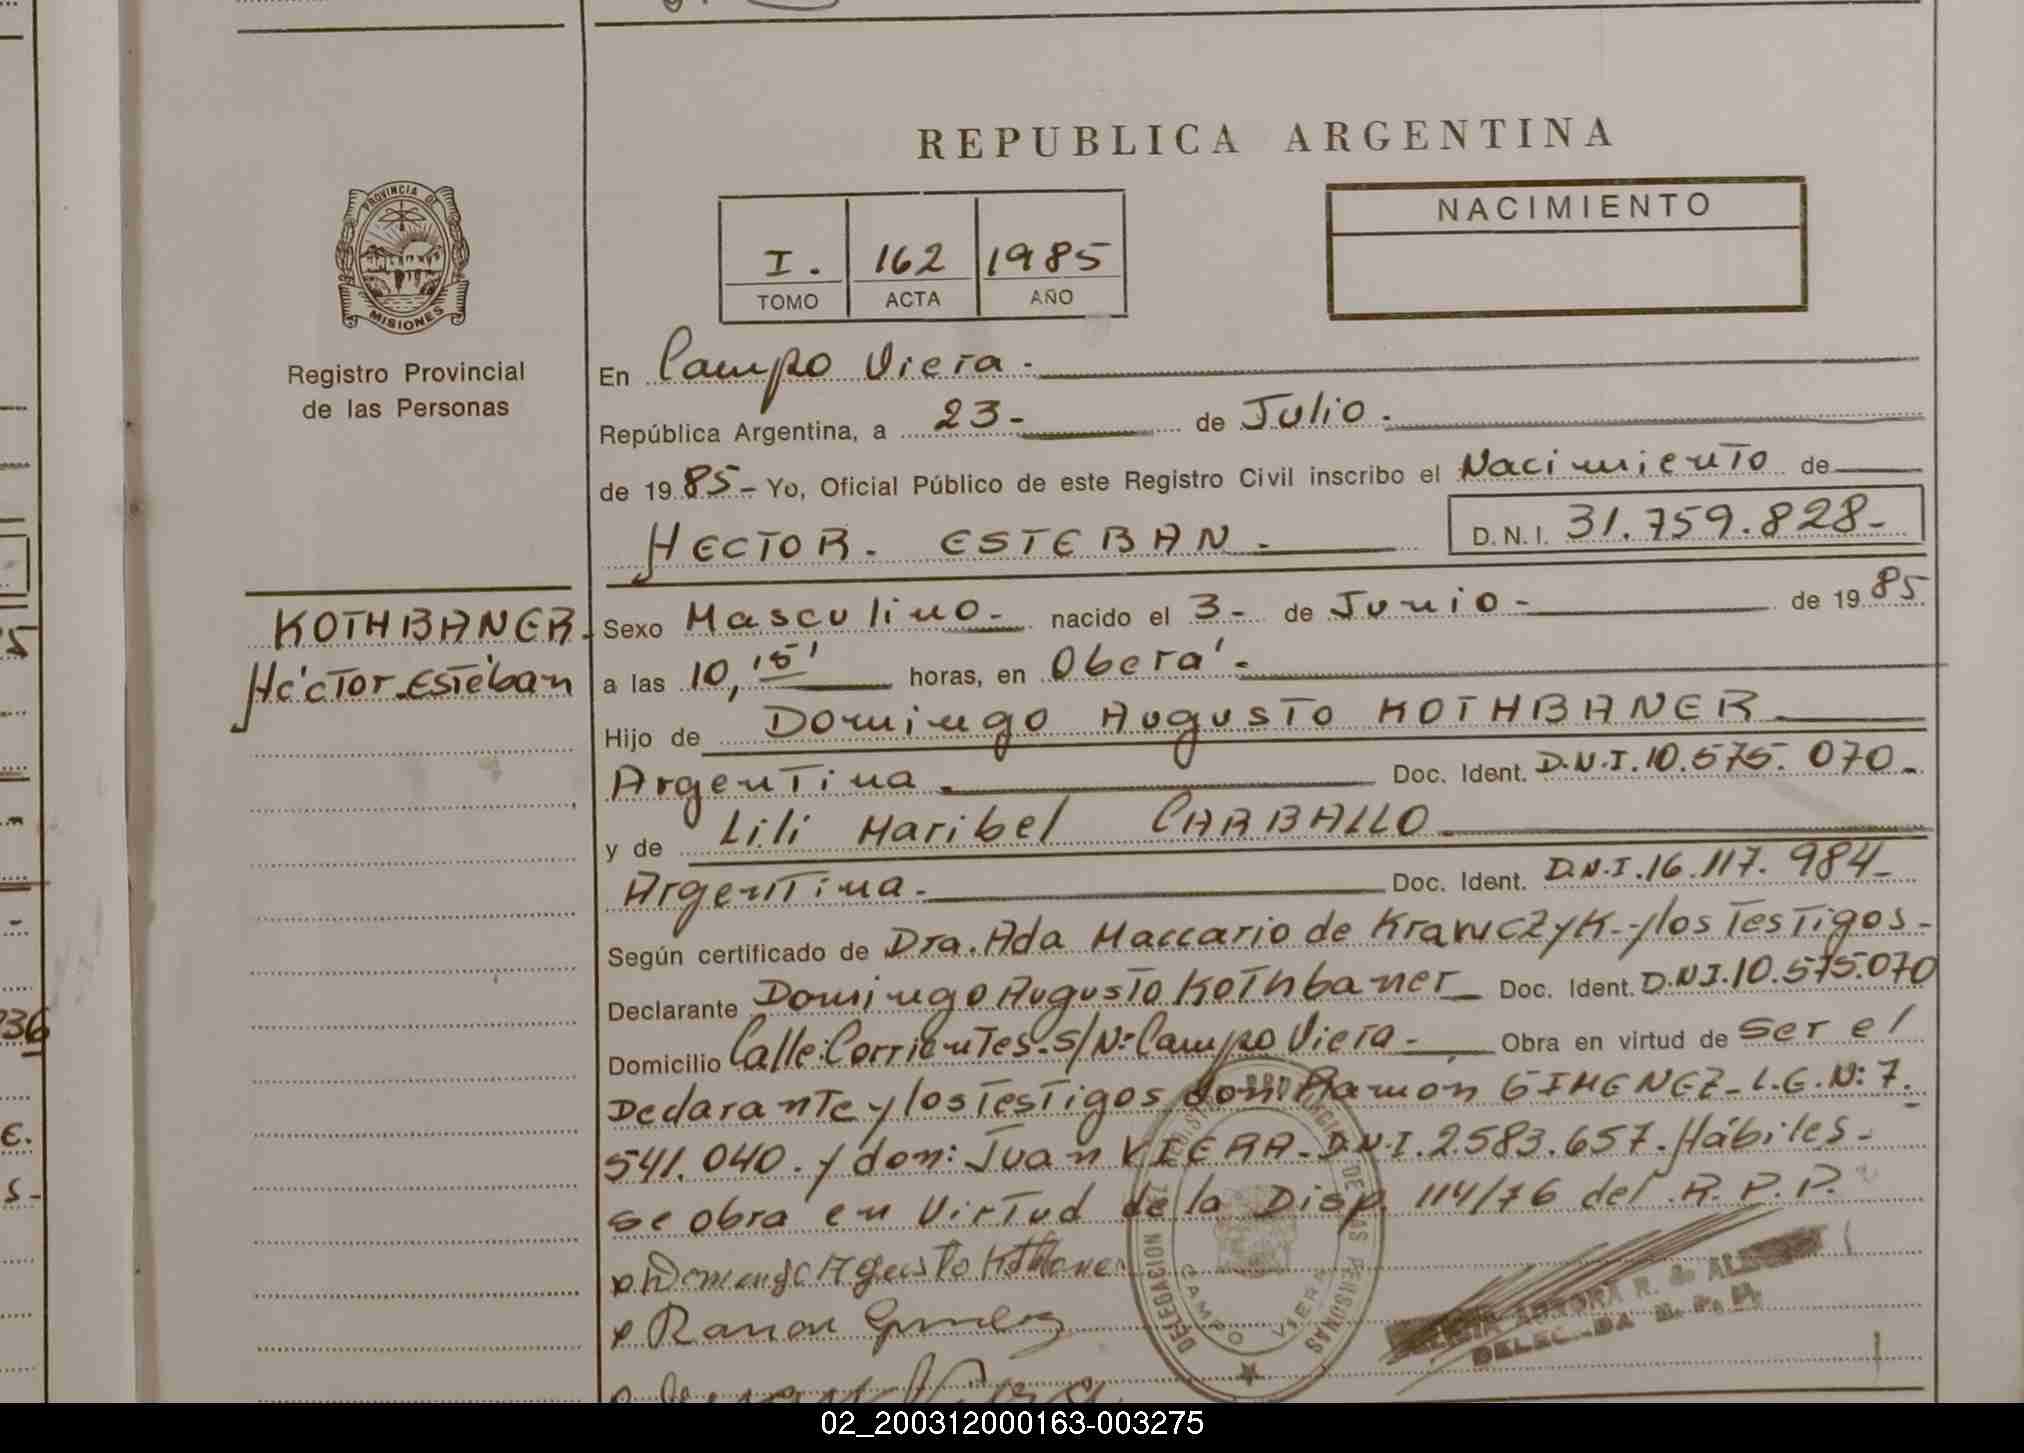 REPUBLICA ARGENTINA
PROVINCIA DE
MISIONES
Registro Provincial
de las Personas
I. 162 1985
TOMO ACTA AÑO
NACIMIENTO
En Campo Viera.
República Argentina, a 23- de Julio.
de 19 85- Yo, Oficial Público de este Registro Civil inscribo el Nacimiento de
HECTOR. ESTEBAN. D.N.I. 31.759.828-
KOTHBANER.
Héctor Estéban
Sexo Masculino- nacido el 3- de Junio- de 19 85
a las 10,15' horas, en Oberá.
Hijo de Domingo Augusto KOTHBANER
Argentina. Doc. Ident. D.N.I. 10.575.070-
y de Lili Maribel CARBALLO
Argentina. Doc. Ident. D.N.I. 16.117.984-
Según certificado de Dra. Ada Maccario de Krawczyk- y los Testigos-
Declarante Domingo Augusto Kothbaner Doc. Ident. D.N.I. 10.575.070
Domicilio Calle: Corrientes- S/N: Campo Viera- Obra en virtud de ser el
Declarante y los Testigos don: Ramón GIMENEZ- L.E. N: 7.
541.040. y don: Juan VIERA- D.N.I. 2.583.657. Hábiles-
se obra en Virtud de la Disp. 114/76 del R.P.P.
Ramon
DELEGACION
CAMPO VIERA
DE LAS PERSONAS
DELEGADA R. P. P.
36
02_200312000163-003275